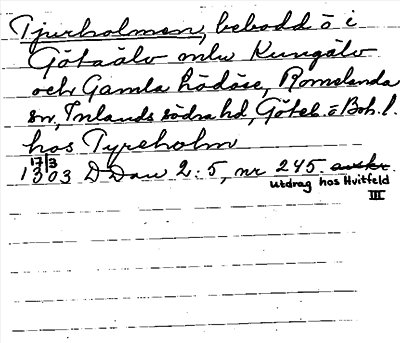 Tjurholmen, bebodd ö i
Götaälv mlw Kungälv
och Gamla Lödöse, Romelanda
sn, Inlands södra hd, Göteb. o Boh. l.
hos Tyreholm
17/3
1303 DDan 2:5, nr 245. avskr.
utdrag hos Hvitfeld
III